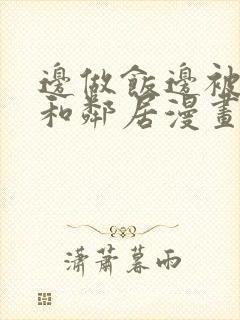 邊做飯邊被
和鄰居漫畫
瀟蕭暮雨